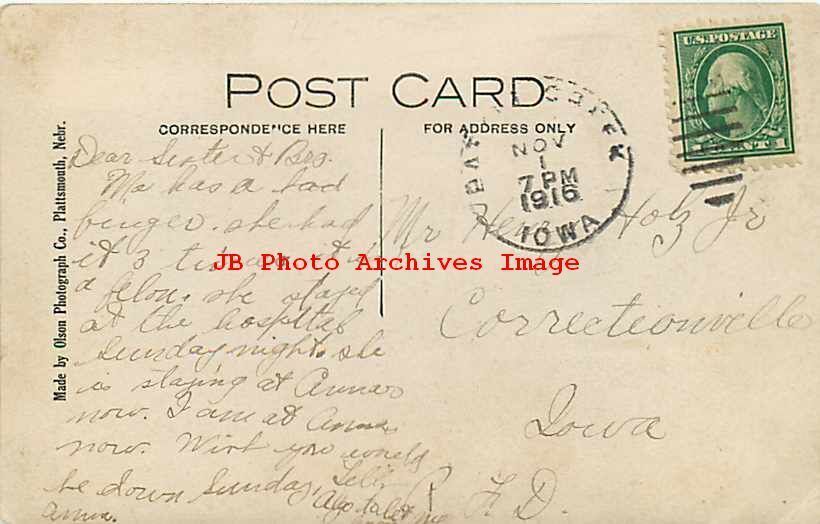 POST CARD
CORRESPONDENCE HERE
FOR ADDRESS ONLY
U.S. POSTAGE
NOV
1
7 PM
1916
IOWA
Made by Olson Photograph Co., Plattsmouth, Nebr.
Dear Sister & Bro.
Ma has a bad
finger. she had
it 3 times
a felon. she stayed
at the hospital
Sunday night. she
is staying at Annas
now. I am at Annas
now. Wish you would
be down Sunday.
Anna.
Mr Henry Holz Jr
Correctionville
Iowa
R F D.
JB Photo Archives Image